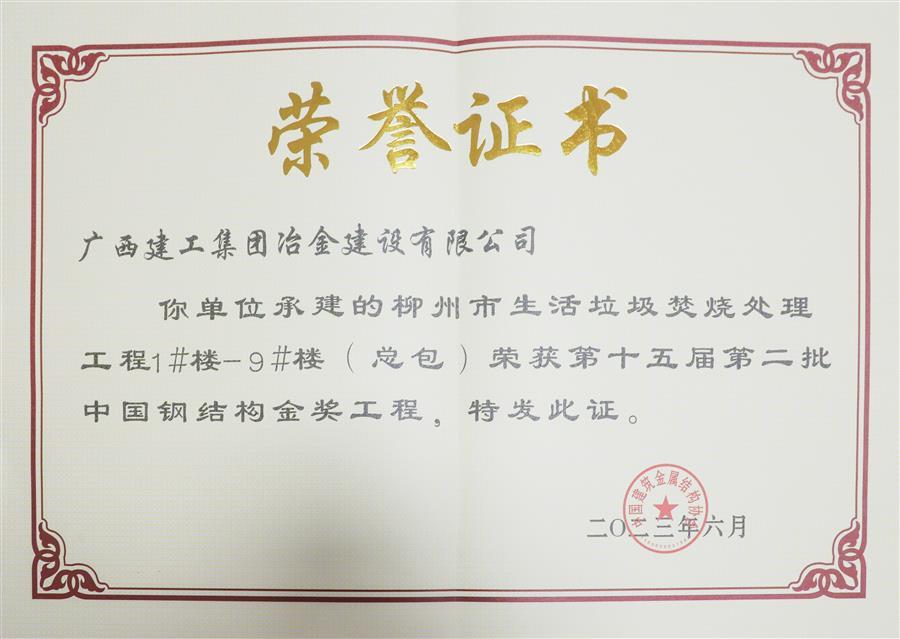 荣誉证书
广西建工集团冶金建设有限公司
你单位承建的柳州市生活垃圾焚烧处理
工程1#楼-9#楼（总包）荣获第十五届第二批
中国钢结构金奖工程，特发此证。
中国建筑金属结构协会
二〇二三年六月